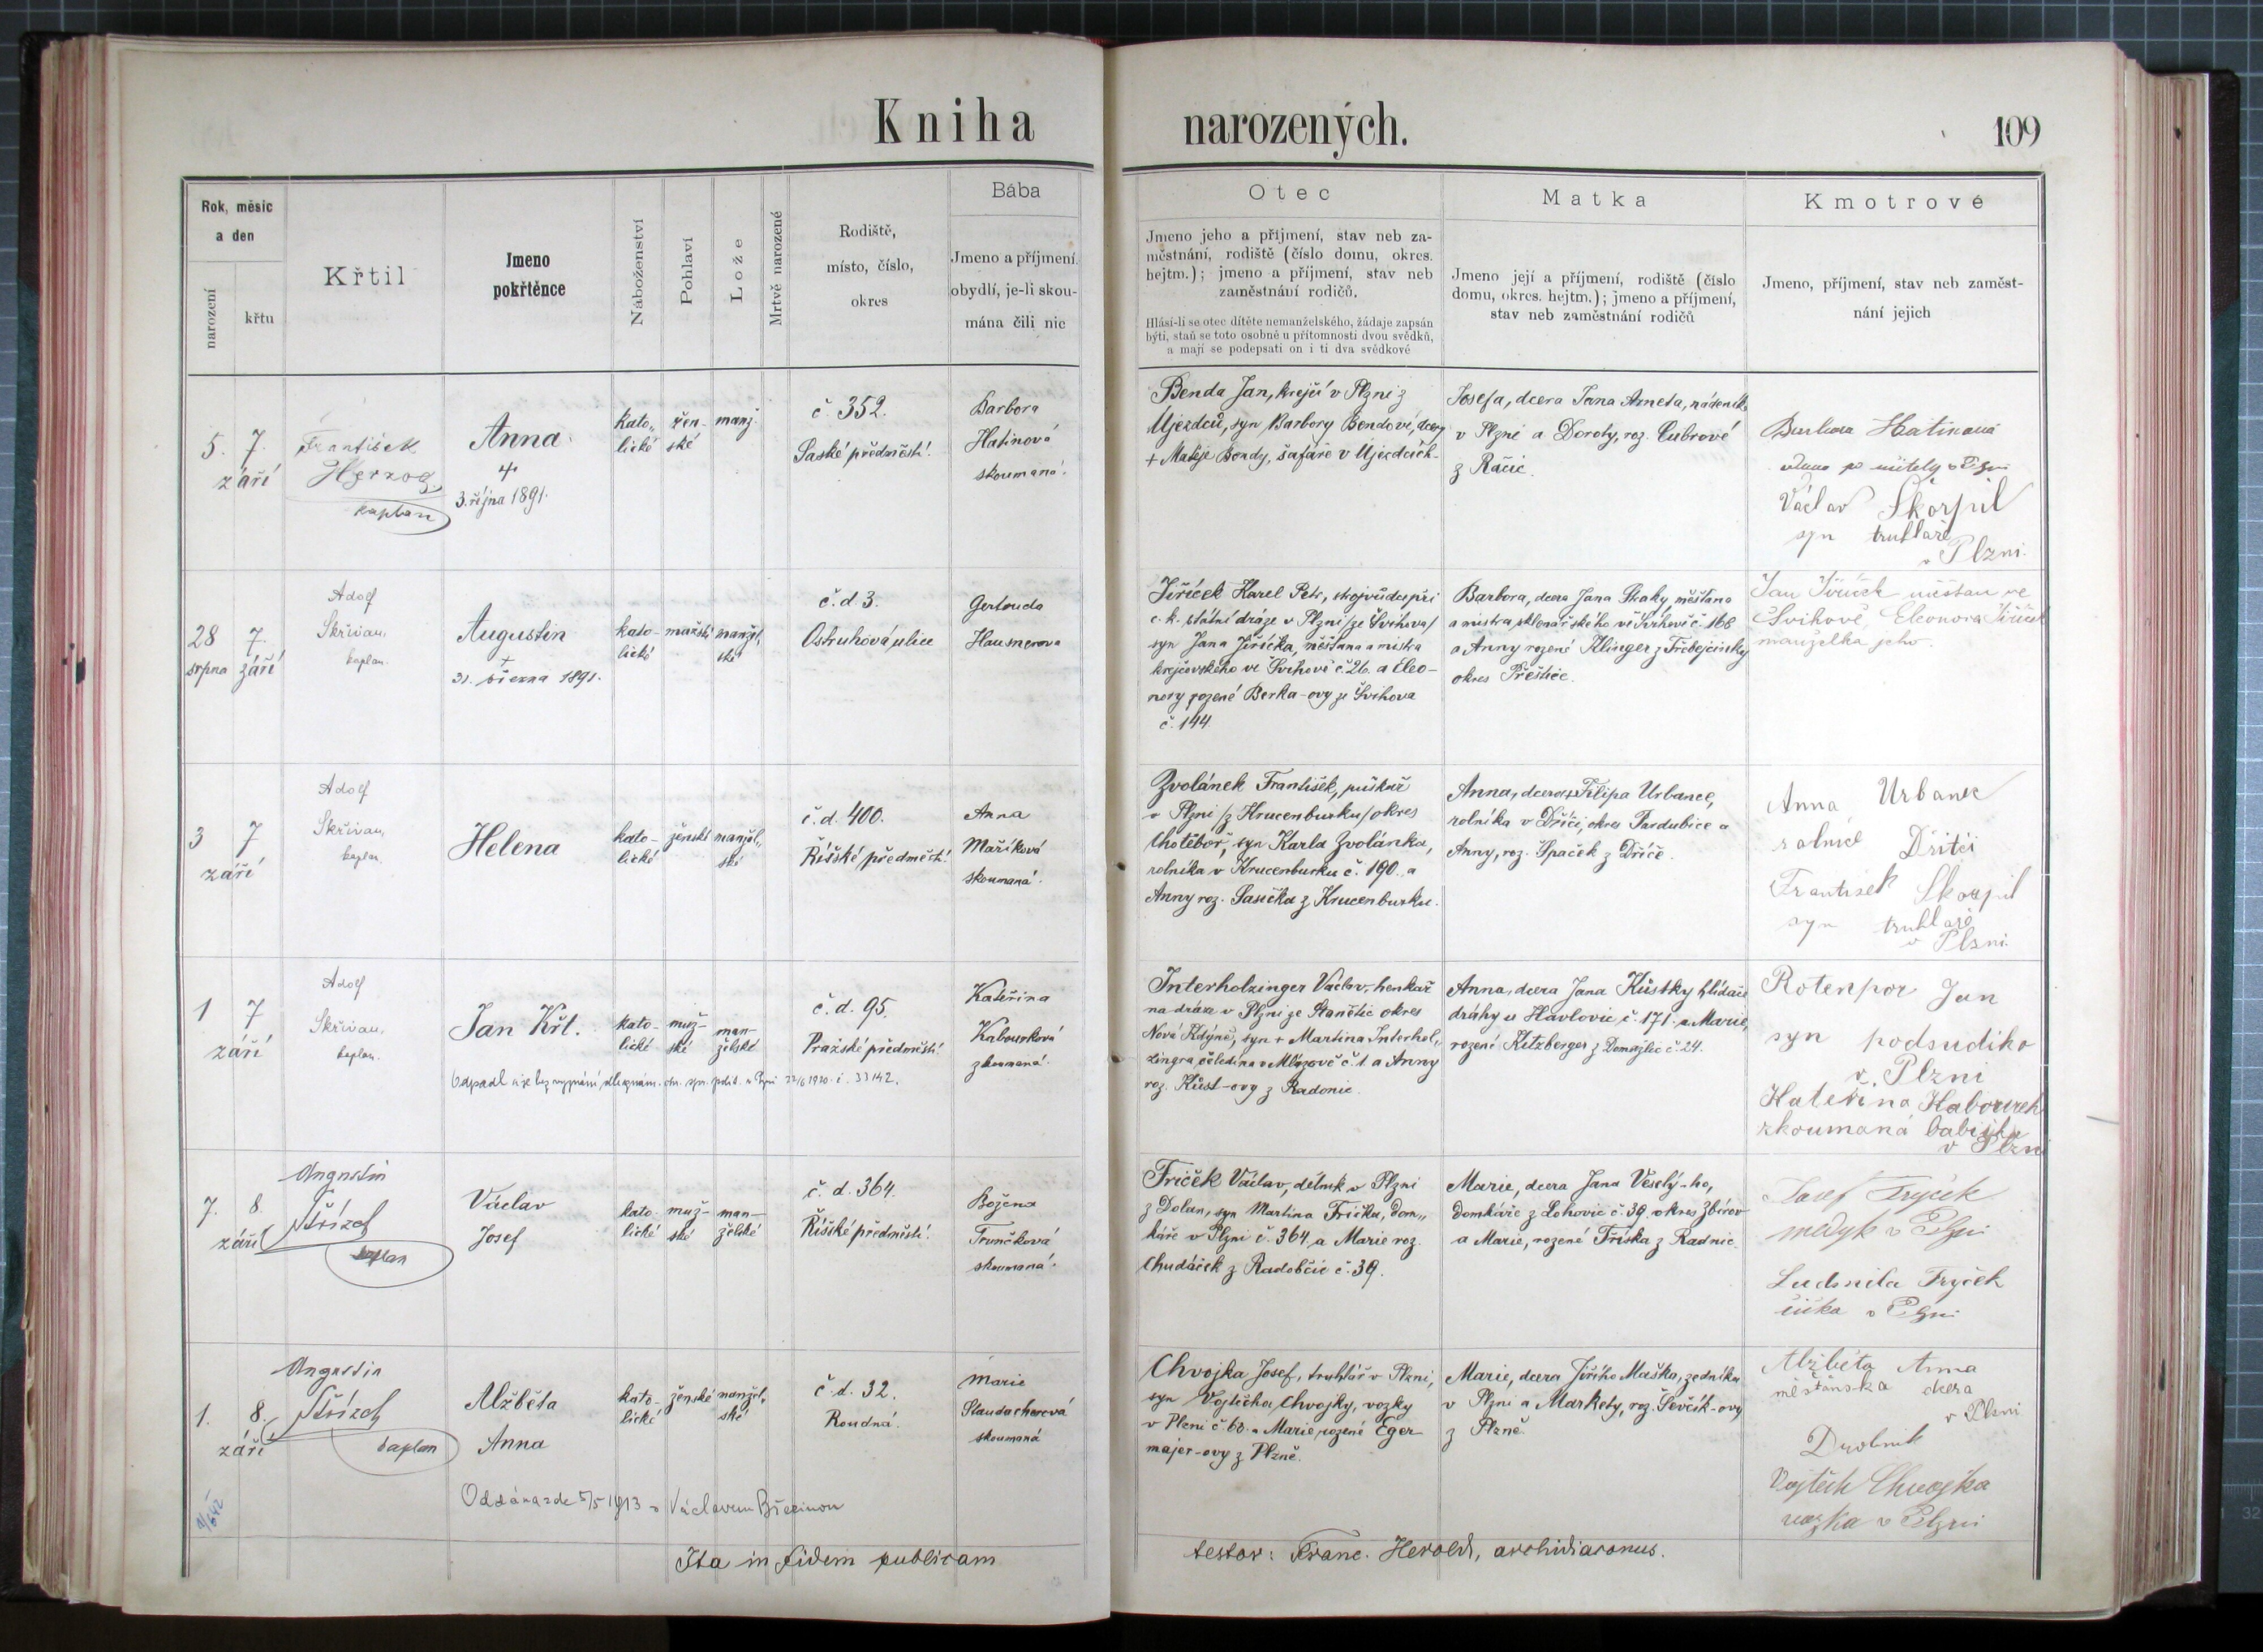 Kniha narozených.
109
Rok, měsíc
a den
narození
křtu
Křtil
Jmeno
pokřtěnce
Náboženství
Pohlaví
Lože
Mrtvě narozené
Rodiště,
místo, číslo,
okres
Bába
Jmeno a příjmení,
obydlí, je-li skou-
mána čili nic
Otec
Jmeno jeho a příjmení, stav neb za-
městnání, rodiště (číslo domu, okres.
hejtm.); jmeno a příjmení, stav neb
zaměstnání rodičů.
Hlásí-li se otec dítěte nemanželského, žádaje zapsán
býti, staň se toto osobně u přítomnosti dvou svědků,
a mají se podepsati on i ti dva svědkové
Matka
Jmeno její a příjmení, rodiště (číslo
domu, okres. hejtm.); jmeno a příjmení,
stav neb zaměstnání rodičů
Kmotrové
Jmeno, příjmení, stav neb zaměst-
nání jejich
5. 7.
září
František
Herzog,
kaplan
Anna
+
3. října 1891.
kato-
lické
žen-
ské
manž.
č. 352.
Saské předměstí.
Barbora
Hatinová
skoumaná.
Benda Jan, krejčí v Plzni z
Ujezdců, syn Barbory Bendové, dcery
+ Matěje Bendy, šafáře v Ujezdcích
Josefa, dcera Jana Arneta, nádeníka
v Plzni a Doroty, roz. Cubrové
z Račic.
Barbora Hatinová
vdova po učiteli v Plzni
Václav Škorpil
syn truhláře
v Plzni.
28 7.
srpna září
Adolf
Skřivan,
kaplan.
Augustin
+
31. března 1891.
kato-
lické
mužské
manžel.
ské
č. d. 3.
Ostruhová ulice
Gertruda
Hausnerova
Jiříček Karel Petr, strojvůdce při
c. k. státní dráze v Plzni /ze Švihova/
syn Jana Jiříčka, měšťana a mistra
krejčovského ve Švihově č. 26. a Eleo-
nory rozené Berka-ovy ze Švihova
č. 144.
Barbora, dcera Jana Skaky, měšťana
a mistra sklenářského ve Švihově č. 168
a Anny rozené Klinger z Třebejcinky
okres Přeštice.
Jan Jiříček měšťan ve
Švihově, Eleonora Jiříček
manželka jeho.
3 7
září
Adolf
Skřivan,
kaplan.
Helena
kato-
lické
ženské
manžel.
ské
č. d. 400.
Říšské předměstí.
Anna
Maříková
skoumaná.
Zvolánek František, puškař
v Plzni /z Krucenburku/ okres
Chotěboř, syn Karla Zvolánka,
rolníka v Krucenburku č. 190., a
Anny roz. Sasička z Krucenburku.
Anna, dcera + Filipa Urbance,
rolníka v Dříči, okres Pardubice a
Anny, roz. Špaček z Dříče.
Anna Urbanec
rolnice Dřitči
František Škorpil
syn truhláře
v Plzni.
1 7
září
Adolf
Skřivan,
kaplan.
Jan Křt.
kato-
lické
muž-
ské
man-
želské
č. d. 95.
Pražské předměstí.
Kateřina
Kabourková
zkoumaná.
Odpadl a je bez vyznání dle oznám. okr. spr. polit. v Plzni 22/6 1920. č. 33142.
Interholzinger Václav, henkař
na dráze v Plzni ze Stanětic okres
Nová Kdyně, syn + Martina Interhol-
zingra čeledína v Mlýzově č. 1. a Anny
roz. Kůst-ovy z Radonic.
Anna, dcera Jana Kůstky hlídače
dráhy u Havlovic č. 171. a Marie,
rozené Kitzberger z Domažlic č. 24.
Rotenpor Jan
syn podsudiho
v. Plzni
Kateřina Kabourek
zkoumaná babička
v Plzni
7. 8.
září
Augustin
Střízek
kaplan
Václav
Josef
kato-
lické
muž-
ské
man-
želské
č. d. 364.
Říšské předměstí.
Božena
Trunčková
skoumaná.
Friček Václav, dělník v Plzni
z Dolan, syn Martina Frička, dom-
káře v Plzni č. 364 a Marie roz.
Chudáček z Radobčic č. 39.
Marie, dcera Jana Veselý-ho,
domkáře z Lohovic č. 39. okres Zbirov
a Marie, rozené Tříska z Radnic.
Josef Fryček
medyk v Plzni
Ludmila Fryček
v Plzni
1. 8.
září
Augustin
Střízek
kaplan
Alžběta
Anna
kato-
lické
ženské
manžel.
ské
č. d. 32.
Roudná.
Marie
Staudacherová
skoumaná
Oddána zde 5/5 1913 s Václavem Březinou
Chvojka Josef, truhlář v Plzni,
syn Vojtěcha Chvojky, vozky
v Plzni č. 68. a Marie, rozené Eger
majer-ovy z Plzně.
Marie, dcera Jiřího Maška, zedníka
v Plzni a Markety, roz. Ševčík-ovy
z Plzně.
Alžběta Anna
měšťánska dcera
v Plzni
Drobnik
Vojtěch Chvojka
vozka v Plzni
Ita in fidem publicam
testor: Franc. Herold, archidiaconus.